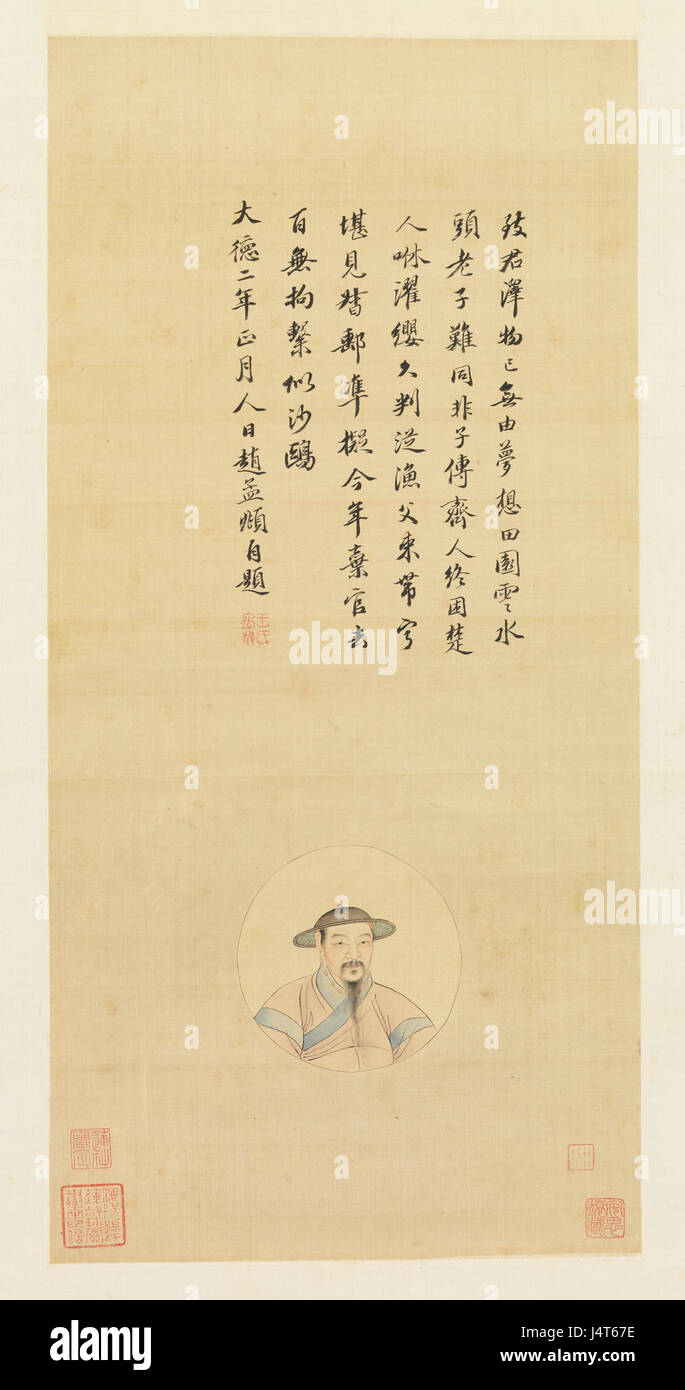 致君澤物已無由夢想田園雲水
頭老子難同非子傳齊人終困楚
人咻濯纓久判從漁父束帶寧
堪見督郵準擬今年棄官去
百無拘繫似沙鷗
大德二年正月人日趙孟頫自題
alamy
alamy
alamy
Image ID: J4T67E
www.alamy.com